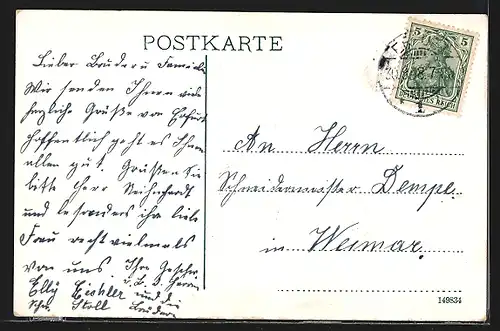 POSTKARTE
Lieber Bruder u Familie
Wir senden Ihnen viele
herzliche Grüße von Erfurt
Hoffentlich geht es Ihnen
allen gut. Grüssen Sie
bitte Herr
und besonders ihr liebe
Frau recht vielmals
von uns Ihre Geschw.
Elly Eichler und die
Stoll Bruder
5 5
An Herrn
Schneidermeister Dempe.
in Weimar.
149834